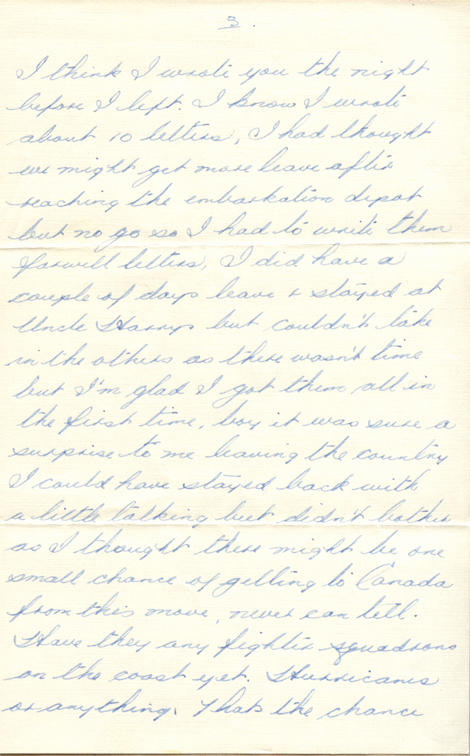 3.
I think I wrote you the night
before I left. I know I wrote
about 10 letters, I had thought
we might get more leave after
reaching the embarkation depot
but no go so I had to write them
farwell letters, I did have a
couple of days leave & stayed at
Uncle Harrys but couldn't take
in the others as there wasn't time
but I'm glad I got them all in
the first time, boy it was sure a
surprise to me leaving the country
I could have stayed back with
a little talking but didn't bother
as I thought there might be one
small chance of getting to Canada
from this move, never can tell.
Have they any fighter squadrons
on the coast yet. Hurricanes
or anything. Thats the chance